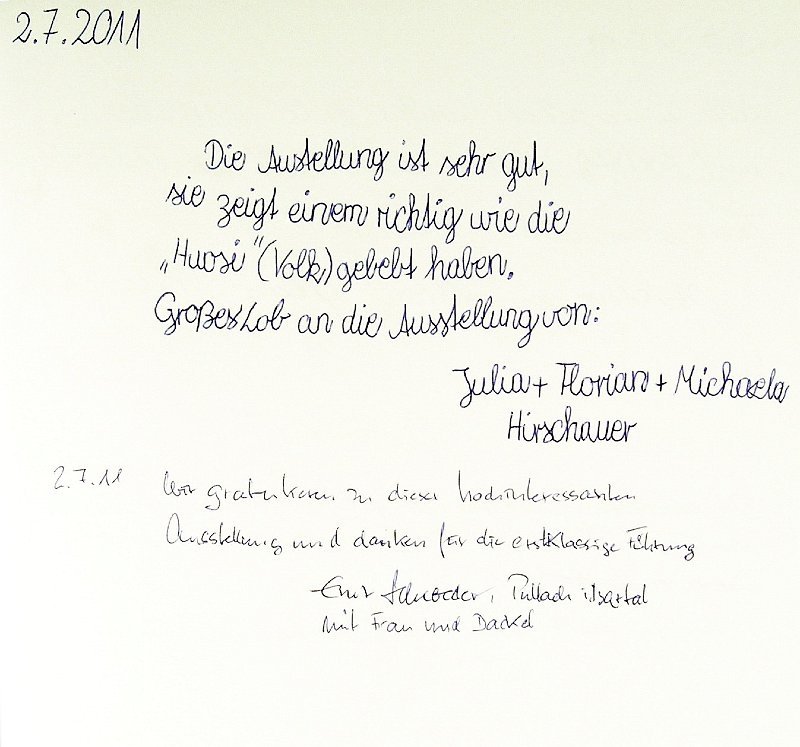 2.7.2011
Die Austellung ist sehr gut,
sie zeigt einem richtig wie die
„Huosi" (Volk) gebebt haben.
Großes Lob an die Ausstellung von:
Julia + Florian + Michaela
Hirschauer
2.7.11 Wir gratulieren zu dieser hochinteressanten
Ausstellung und danken für die erstklassige Führung
Schroeder, Pullach Isartal
mit Frau und Dackel